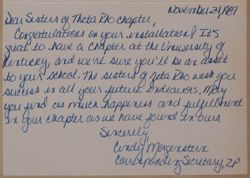 November 24, 1989
Dear Sisters of Theta Rho chapter,
Congratulations on your installation! It's
great to have a chapter at the University of
Kentucky, and we're sure you'll be an asset
to your school. The sisters of Zeta Rho wish you
success in all your future endeavors. May
you find as much happiness and fulfillment
in your chapter as we have found in ours.
Sincerely,
Cindy Morgenstern
Corresponding Secretary, ZP